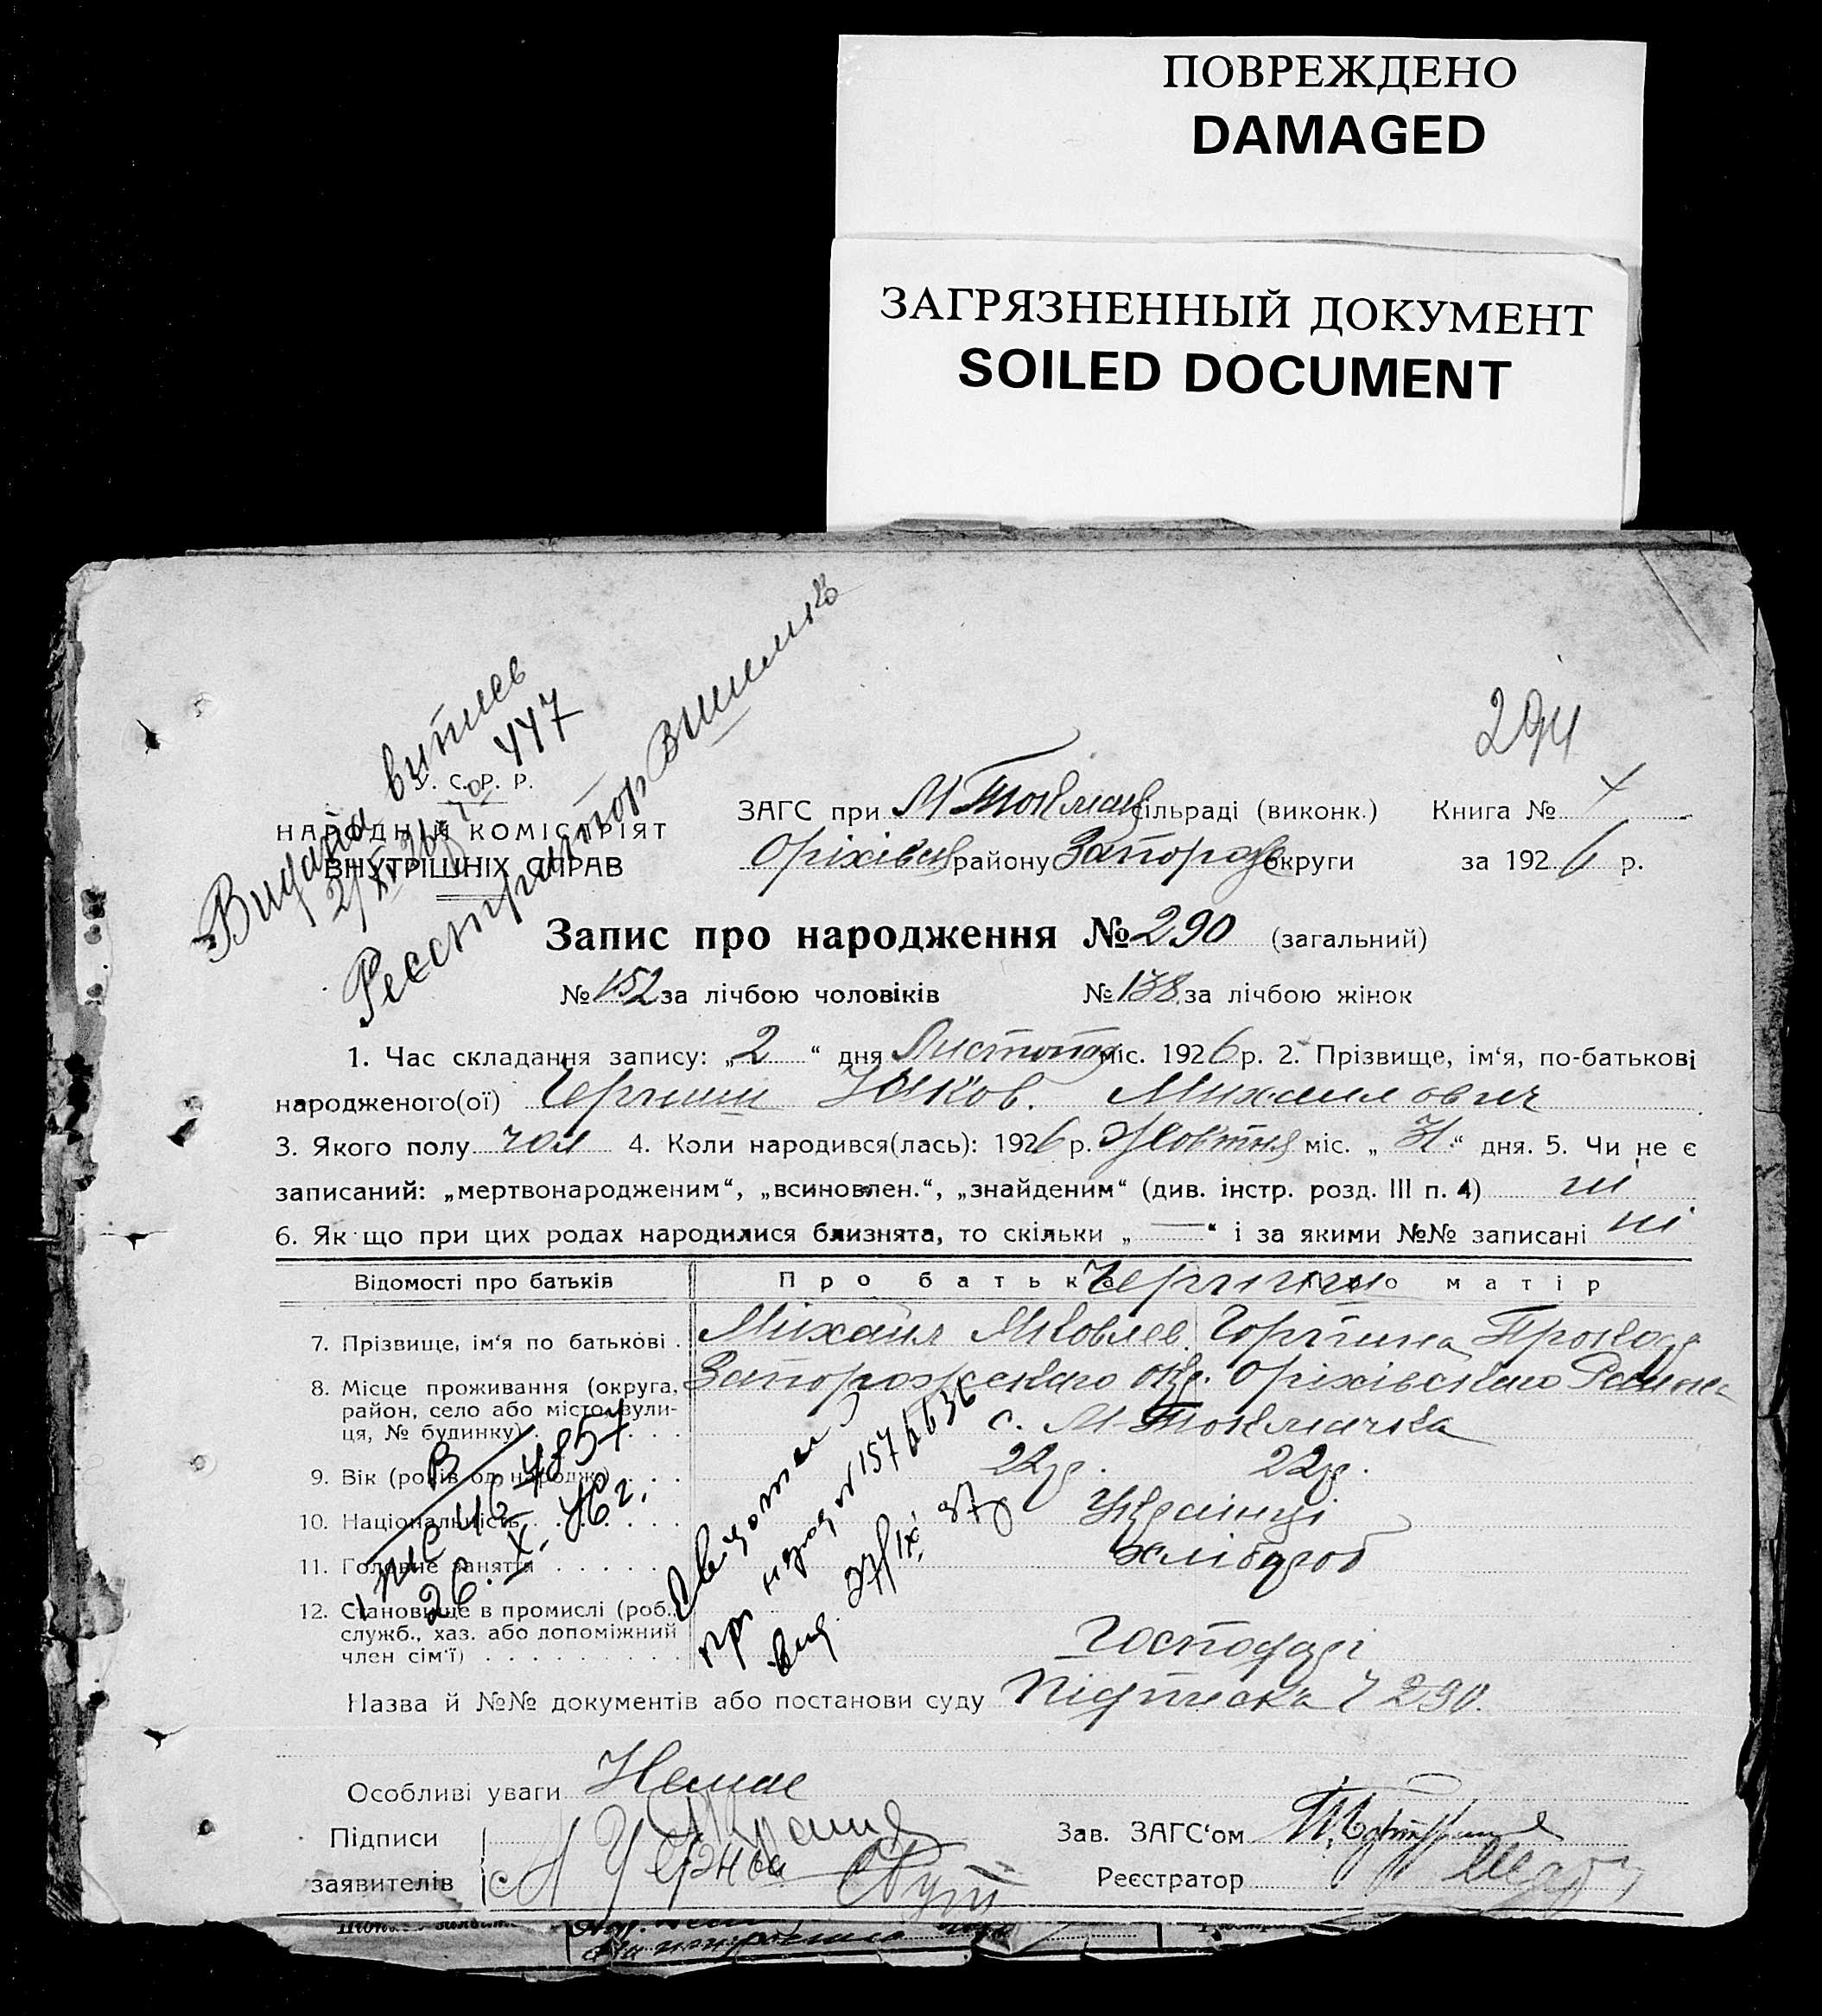 ПОВРЕЖДЕНО
DAMAGED
ЗАГРЯЗНЕННЫЙ ДОКУМЕНТ
SOILED DOCUMENT
294
Видано витяг
447
Реєстратор
У. С. Р. Р.
НАРОДНІЙ КОМІСАРІЯТ
ВНУТРІШНІХ СПРАВ
ЗАГС при М Токмац сільраді (виконк.) Книга №
Оріхівсь району Запорож округи за 1926 р.
Запис про народження № 290 (загальний)
№ 152 за лічбою чоловіків № 138 за лічбою жінок
1. Час складання запису: „2“ дня Листопад міс. 1926 р. 2. Прізвище, ім‘я, по-батькові
народженого(ої) Черниш Яков. Михаилович
3. Якого полу чол 4. Коли народився(лась): 1926 р. Жовтня міс. „31“ дня. 5. Чи не є
записаний: „мертвонародженим“, „всиновлен.“, „знайденим“ (див. інстр. розд. III п. 4) ні
6. Як що при цих родах народилися близнята, то скільки „—“ і за якими №№ записані ні
Відомості про батьків Про батька Про матір
7. Прізвище, ім‘я по батькові . Михаил Яковлев. Горпина
8. Місце проживання (округа, Запорожського окр. Оріхівського Района
район, село або місто, вули-
ця, № будинку) . . . . с. М-Токмачка
9. Вік (років од народж.) . . . 22р. 22р.
10. Національність . . . . . . Українці
11. Головне заняття . . . . . хлібороб
12. Становище в промислі (роб.,
служб., хаз. або допоміжний
член сім‘ї) . . . . . . . . . Господарі
Назва й №№ документів або постанови суду Підписка Ч 290.
Особливі уваги Немає
Підписи
заявителів
Зав. ЗАГС‘ом
Реєстратор
№ 4857
26. X. 46 г.
вид. 27/IX 37р